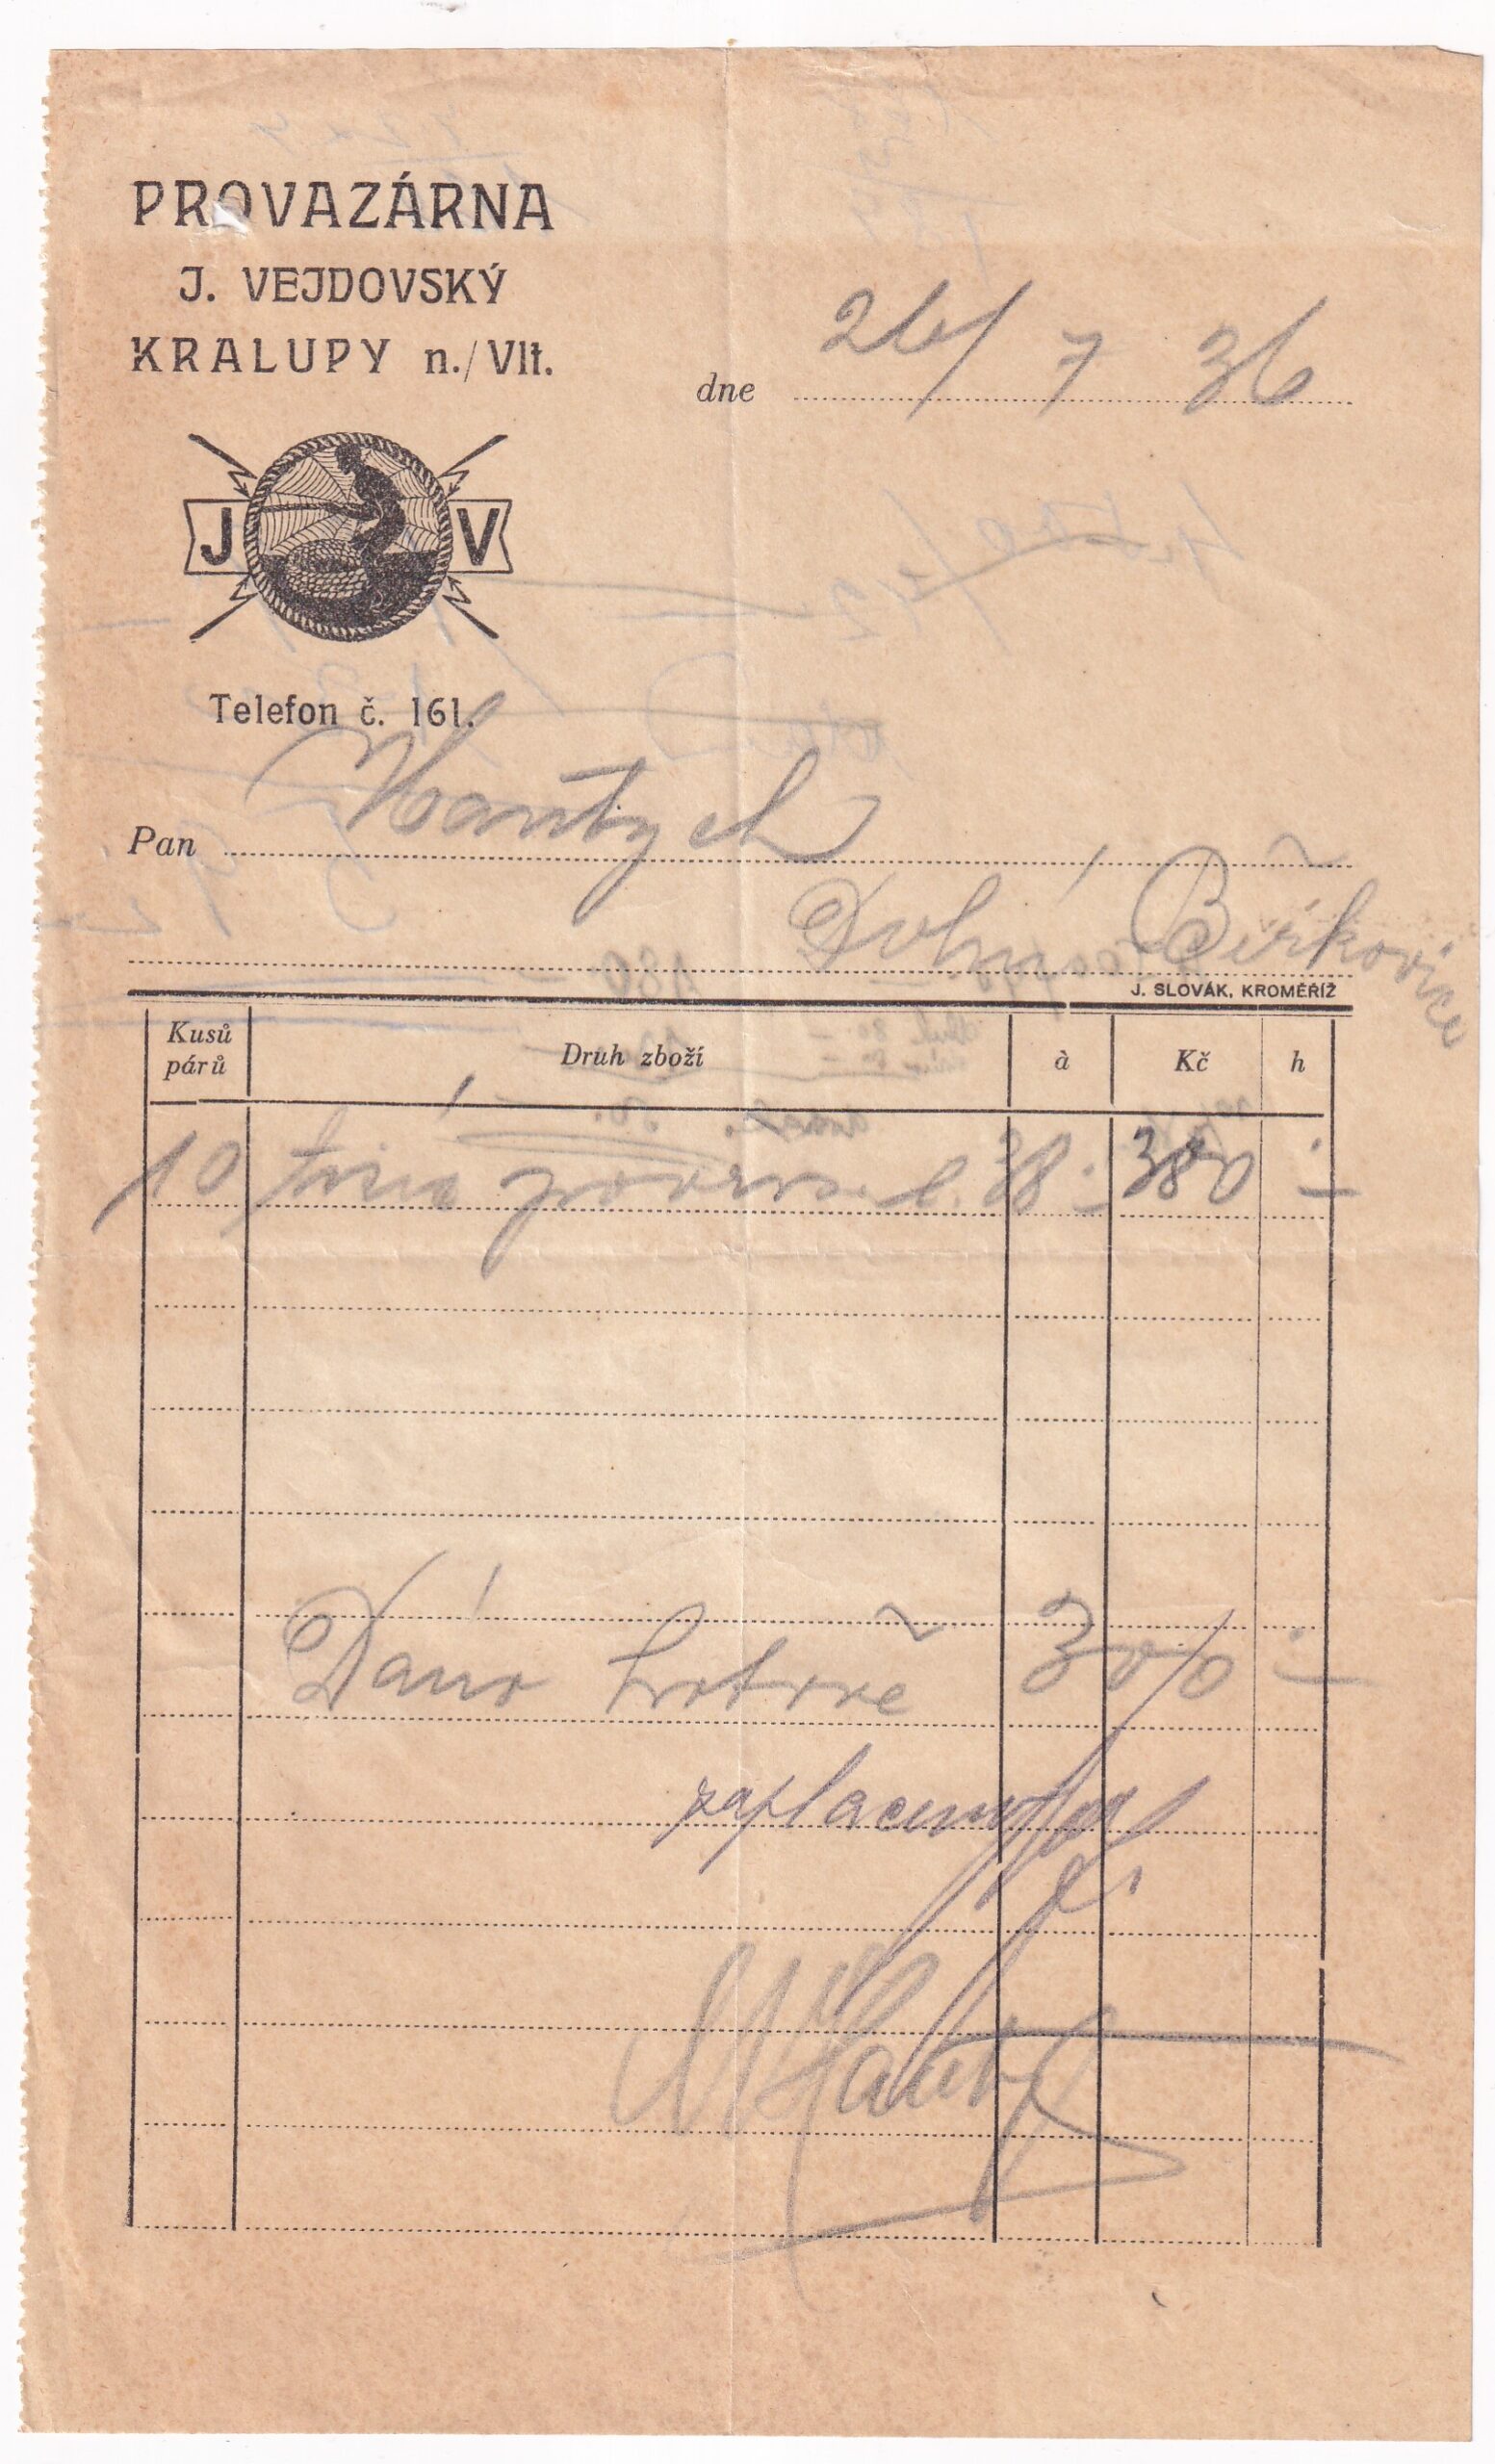 PROVAZÁRNA
J. VEJDOVSKÝ
KRALUPY n./Vlt.
dne 26/7 36
J V
Telefon č. 161.
Pan Hantych
Dolní Beřkovice
J. SLOVÁK, KROMĚŘÍŽ
Kusů párů Druh zboží à Kč h
10 38.- 380 .-
Dáno hotově 300 .-
zaplaceno